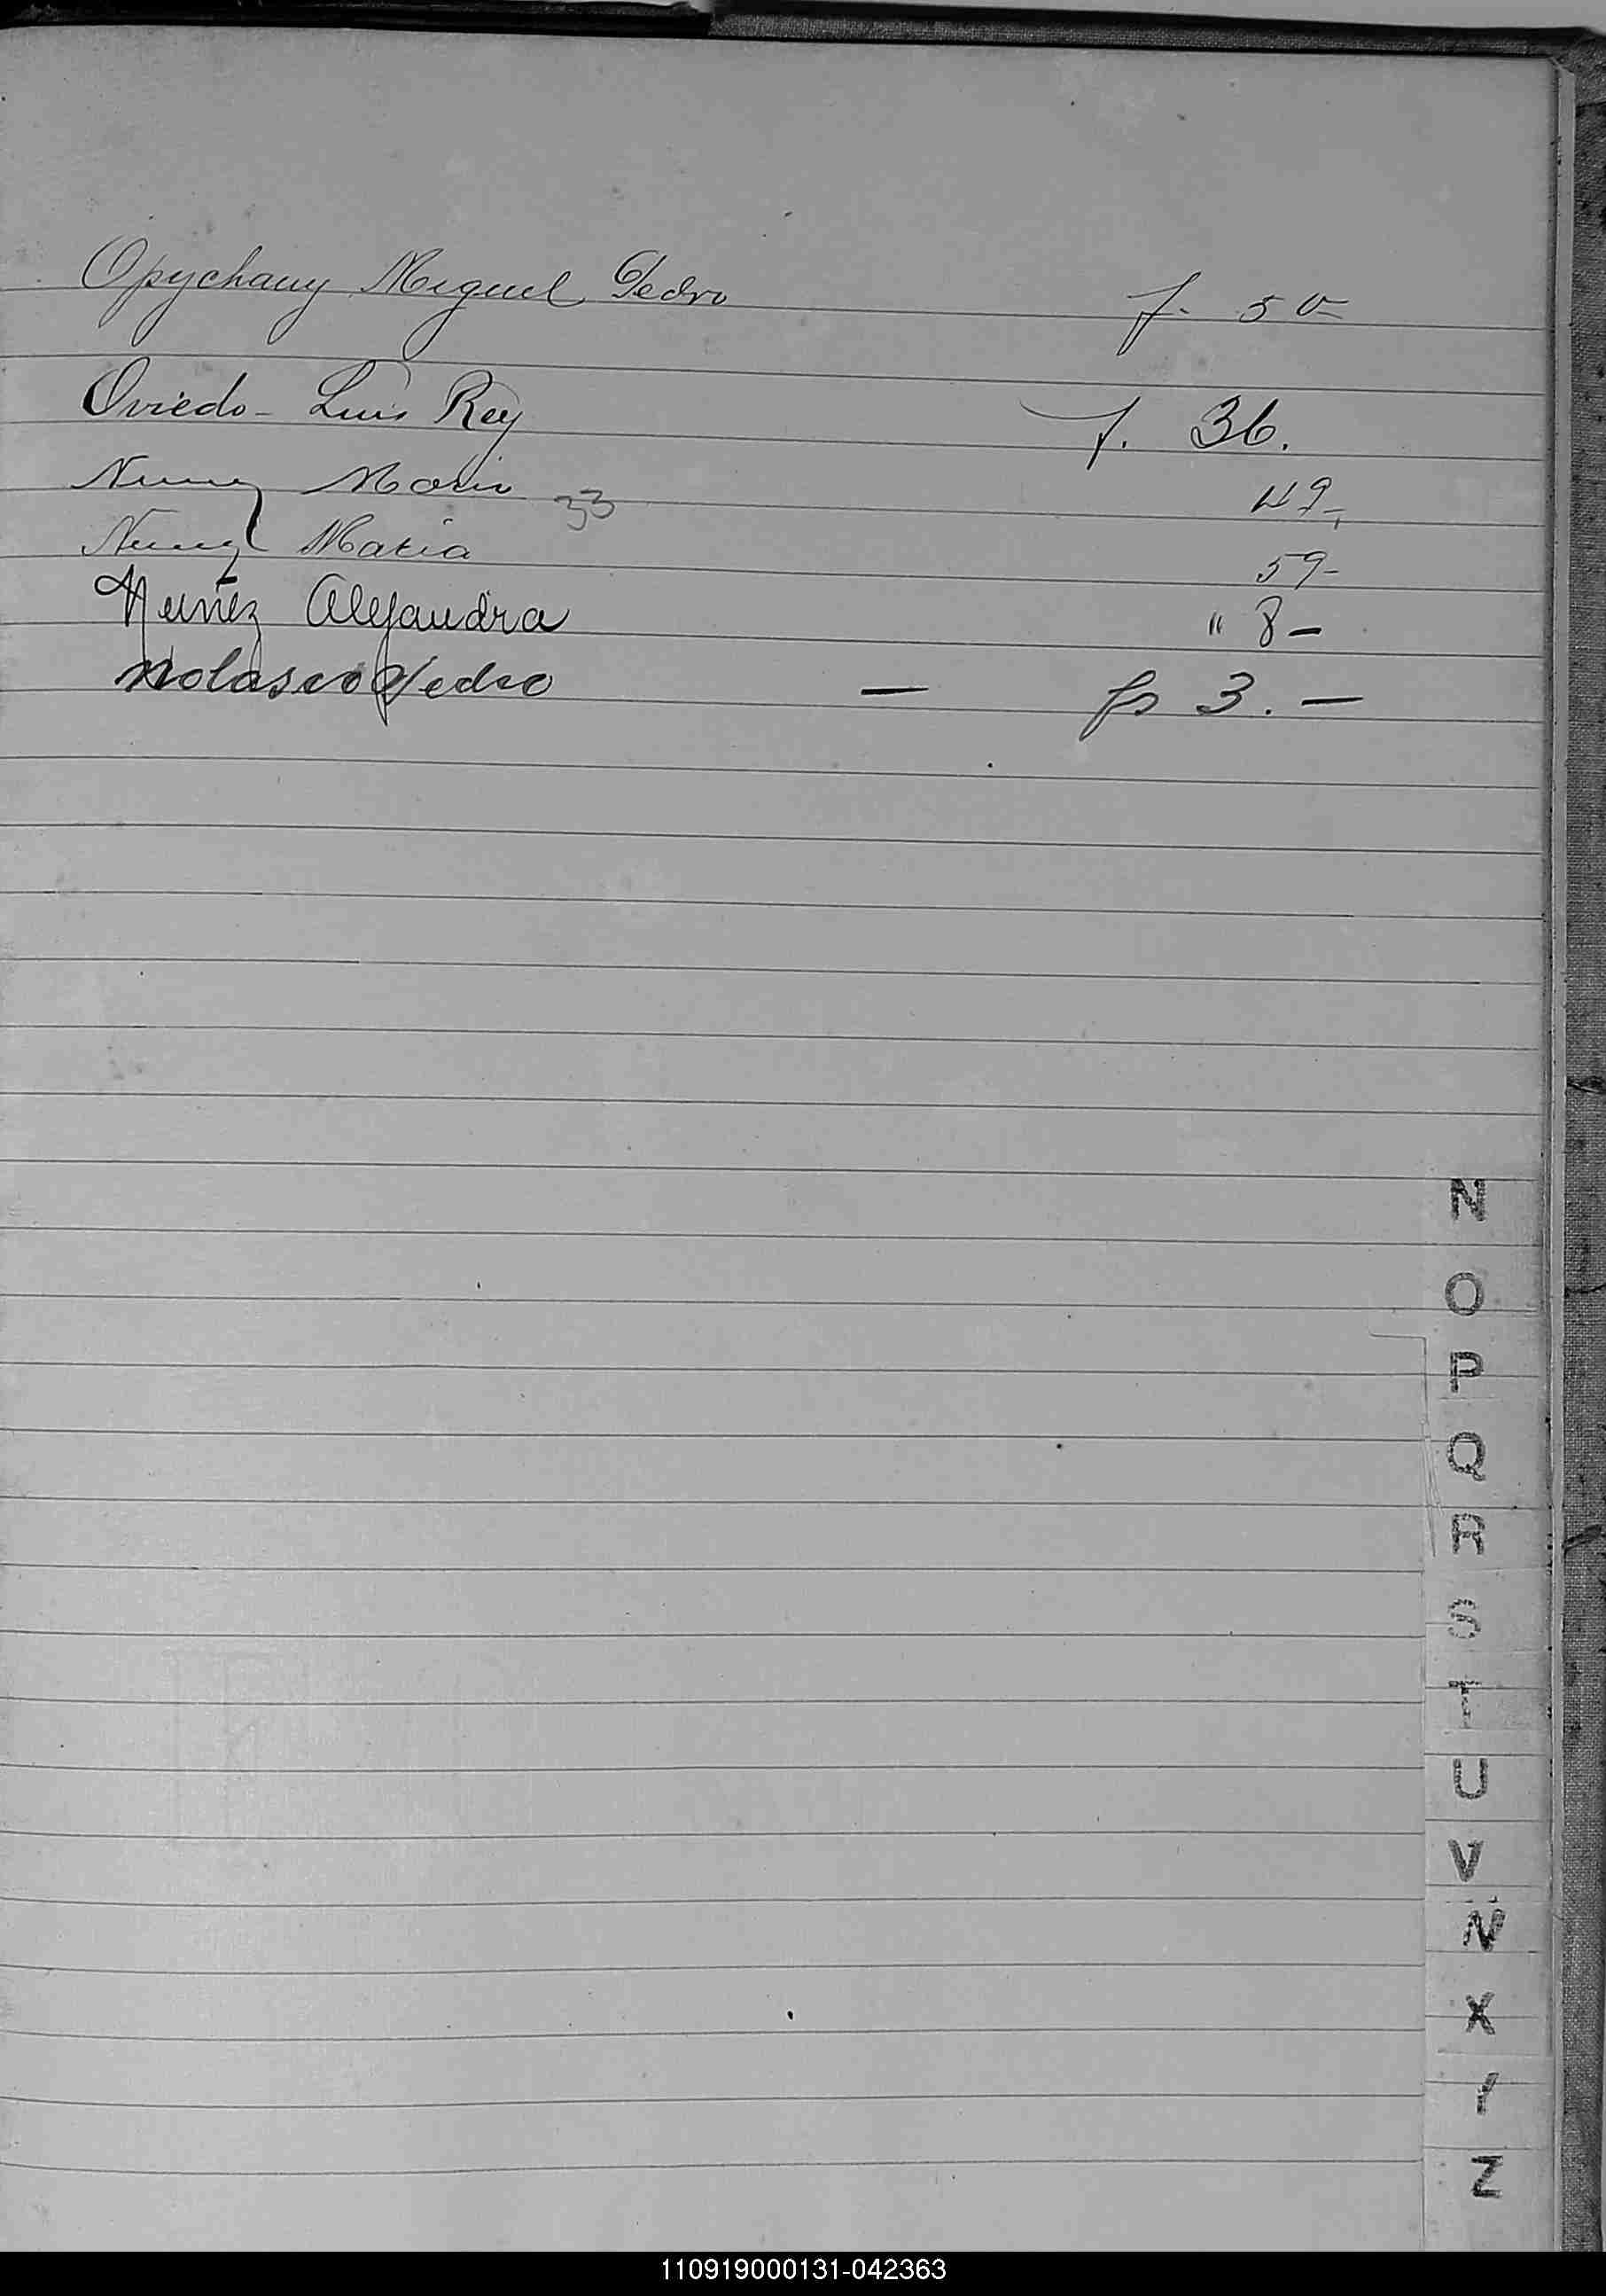 Opychany Miguel Pedro f. 50
Oviedo - Luis Rey f. 36.
Nunez Maria 33 49-
Nunez Maria 59-
Nuñez Alejandra " 8 -
Nolasco Pedro - fs 3. -
N
O
P
Q
R
S
T
U
V
X
Z
110919000131-042363